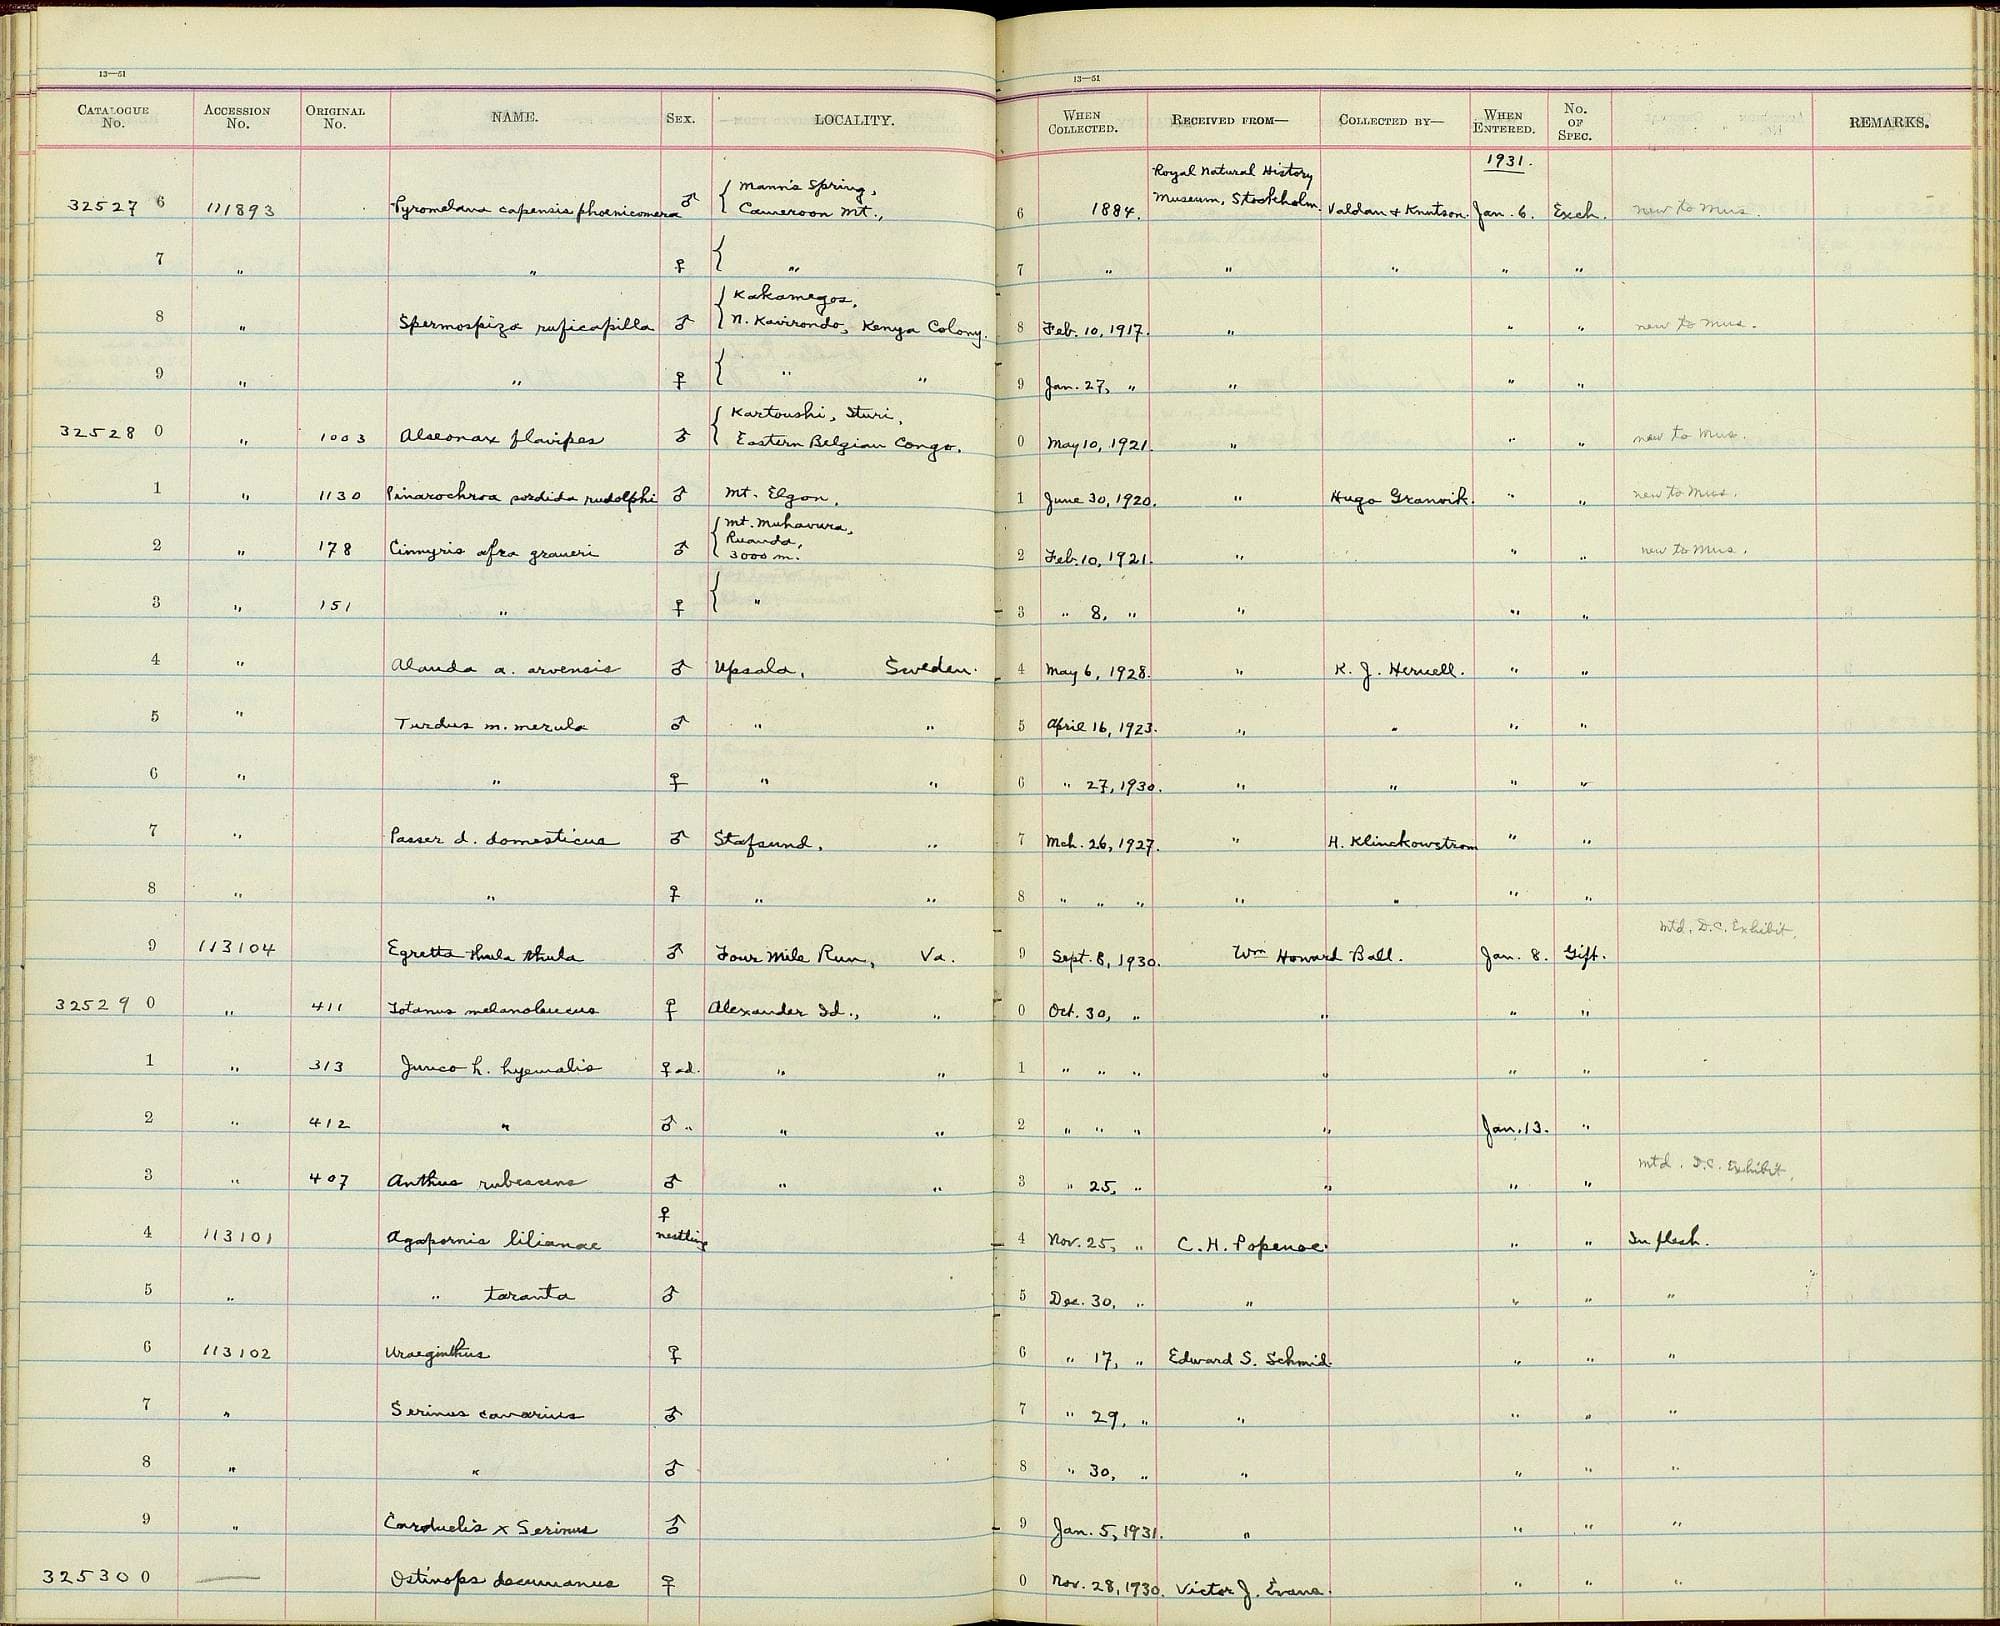 13—51
13—51
CATALOGUE No. ACCESSION No. ORIGINAL No. NAME. SEX. LOCALITY. WHEN COLLECTED. RECEIVED FROM— COLLECTED BY— WHEN ENTERED. No. OF SPEC. REMARKS.
1931.
Royal Natural History
Mann's Spring,
32527 6 111893 Pyromelana capensis phoenicomera ♂ { Cameroon Mt., 6 1884. Museum, Stockholm. Valdau & Knutson. Jan. 6. Exch. new to Mus.
7 " " ♀ { " 7 " " " " "
Kakamegos,
8 " Spermospiza ruficapilla ♂ { N. Kavirondo, Kenya Colony. 8 Feb. 10, 1917. " " " new to Mus.
9 " " ♀ { " " 9 Jan. 27, " " " "
Kartoushi, Ituri,
32528 0 " 1003 Alseonax flavipes ♂ { Eastern Belgian Congo. 0 May 10, 1921. " " " new to Mus.
1 " 1130 Pinarochroa sordida rudolphi ♂ Mt. Elgon. 1 June 30, 1920. " Hugo Granvik. " " new to Mus.
Mt. Muhavura,
Ruanda,
2 " 178 Cinnyris afra graueri ♂ { 3000 m. 2 Feb. 10, 1921. " " " new to Mus.
3 " 151 " ♀ { " 3 " 8, " " " "
4 " Alauda a. arvensis ♂ Upsala, Sweden. 4 May 6, 1928. " K. J. Hernell. " "
5 " Turdus m. merula ♂ " " 5 April 16, 1923. " " " "
6 " " ♀ " " 6 " 27, 1930. " " " "
7 " Passer d. domesticus ♂ Stafsund, " 7 Mch. 26, 1927. " H. Klinckowstrom " "
8 " " ♀ " " 8 " " " " " " "
mtd. D.C. Exhibit.
9 113104 Egretta thula thula ♂ Four Mile Run, Va. 9 Sept. 8, 1930. Wm Howard Ball. Jan. 8. Gift.
32529 0 " 411 Totanus melanoleucus ♀ Alexander Id., " 0 Oct. 30, " " " "
1 " 313 Junco h. hyemalis ♀ ad. " " 1 " " " " " "
2 " 412 " ♂ " " " 2 " " " " Jan. 13. "
mtd. D.C. Exhibit.
3 " 407 Anthus rubescens ♂ " " 3 " 25, " " " "
♀
4 113101 Agapornis lilianae nestling 4 Nov. 25, " C. H. Popenoe. " " In flesh.
5 " " taranta ♂ 5 Dec. 30, " " " " "
6 113102 Uraeginthus ♀ 6 " 17, " Edward S. Schmid. " " "
7 " Serinus canarius ♂ 7 " 29, " " " " "
8 " " ♂ 8 " 30, " " " " "
9 " Carduelis x Serinus ♂ 9 Jan. 5, 1931. " " " "
32530 0 — Ostinops decumanus ♀ 0 Nov. 28, 1930. Victor J. Evans. " " "